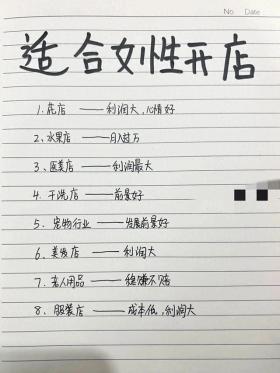 No.
Date
适合女性开店
1. 花店 —— 利润大,心情好
2、水果店 —— 日入过万
3、医美店 —— 利润最大
4. 干洗店 —— 前景好
5. 宠物行业 —— 发展前景好
6. 美发店 —— 利润大
7. 老人用品 —— 稳赚不赔
8. 服装店 —— 成本低,利润大